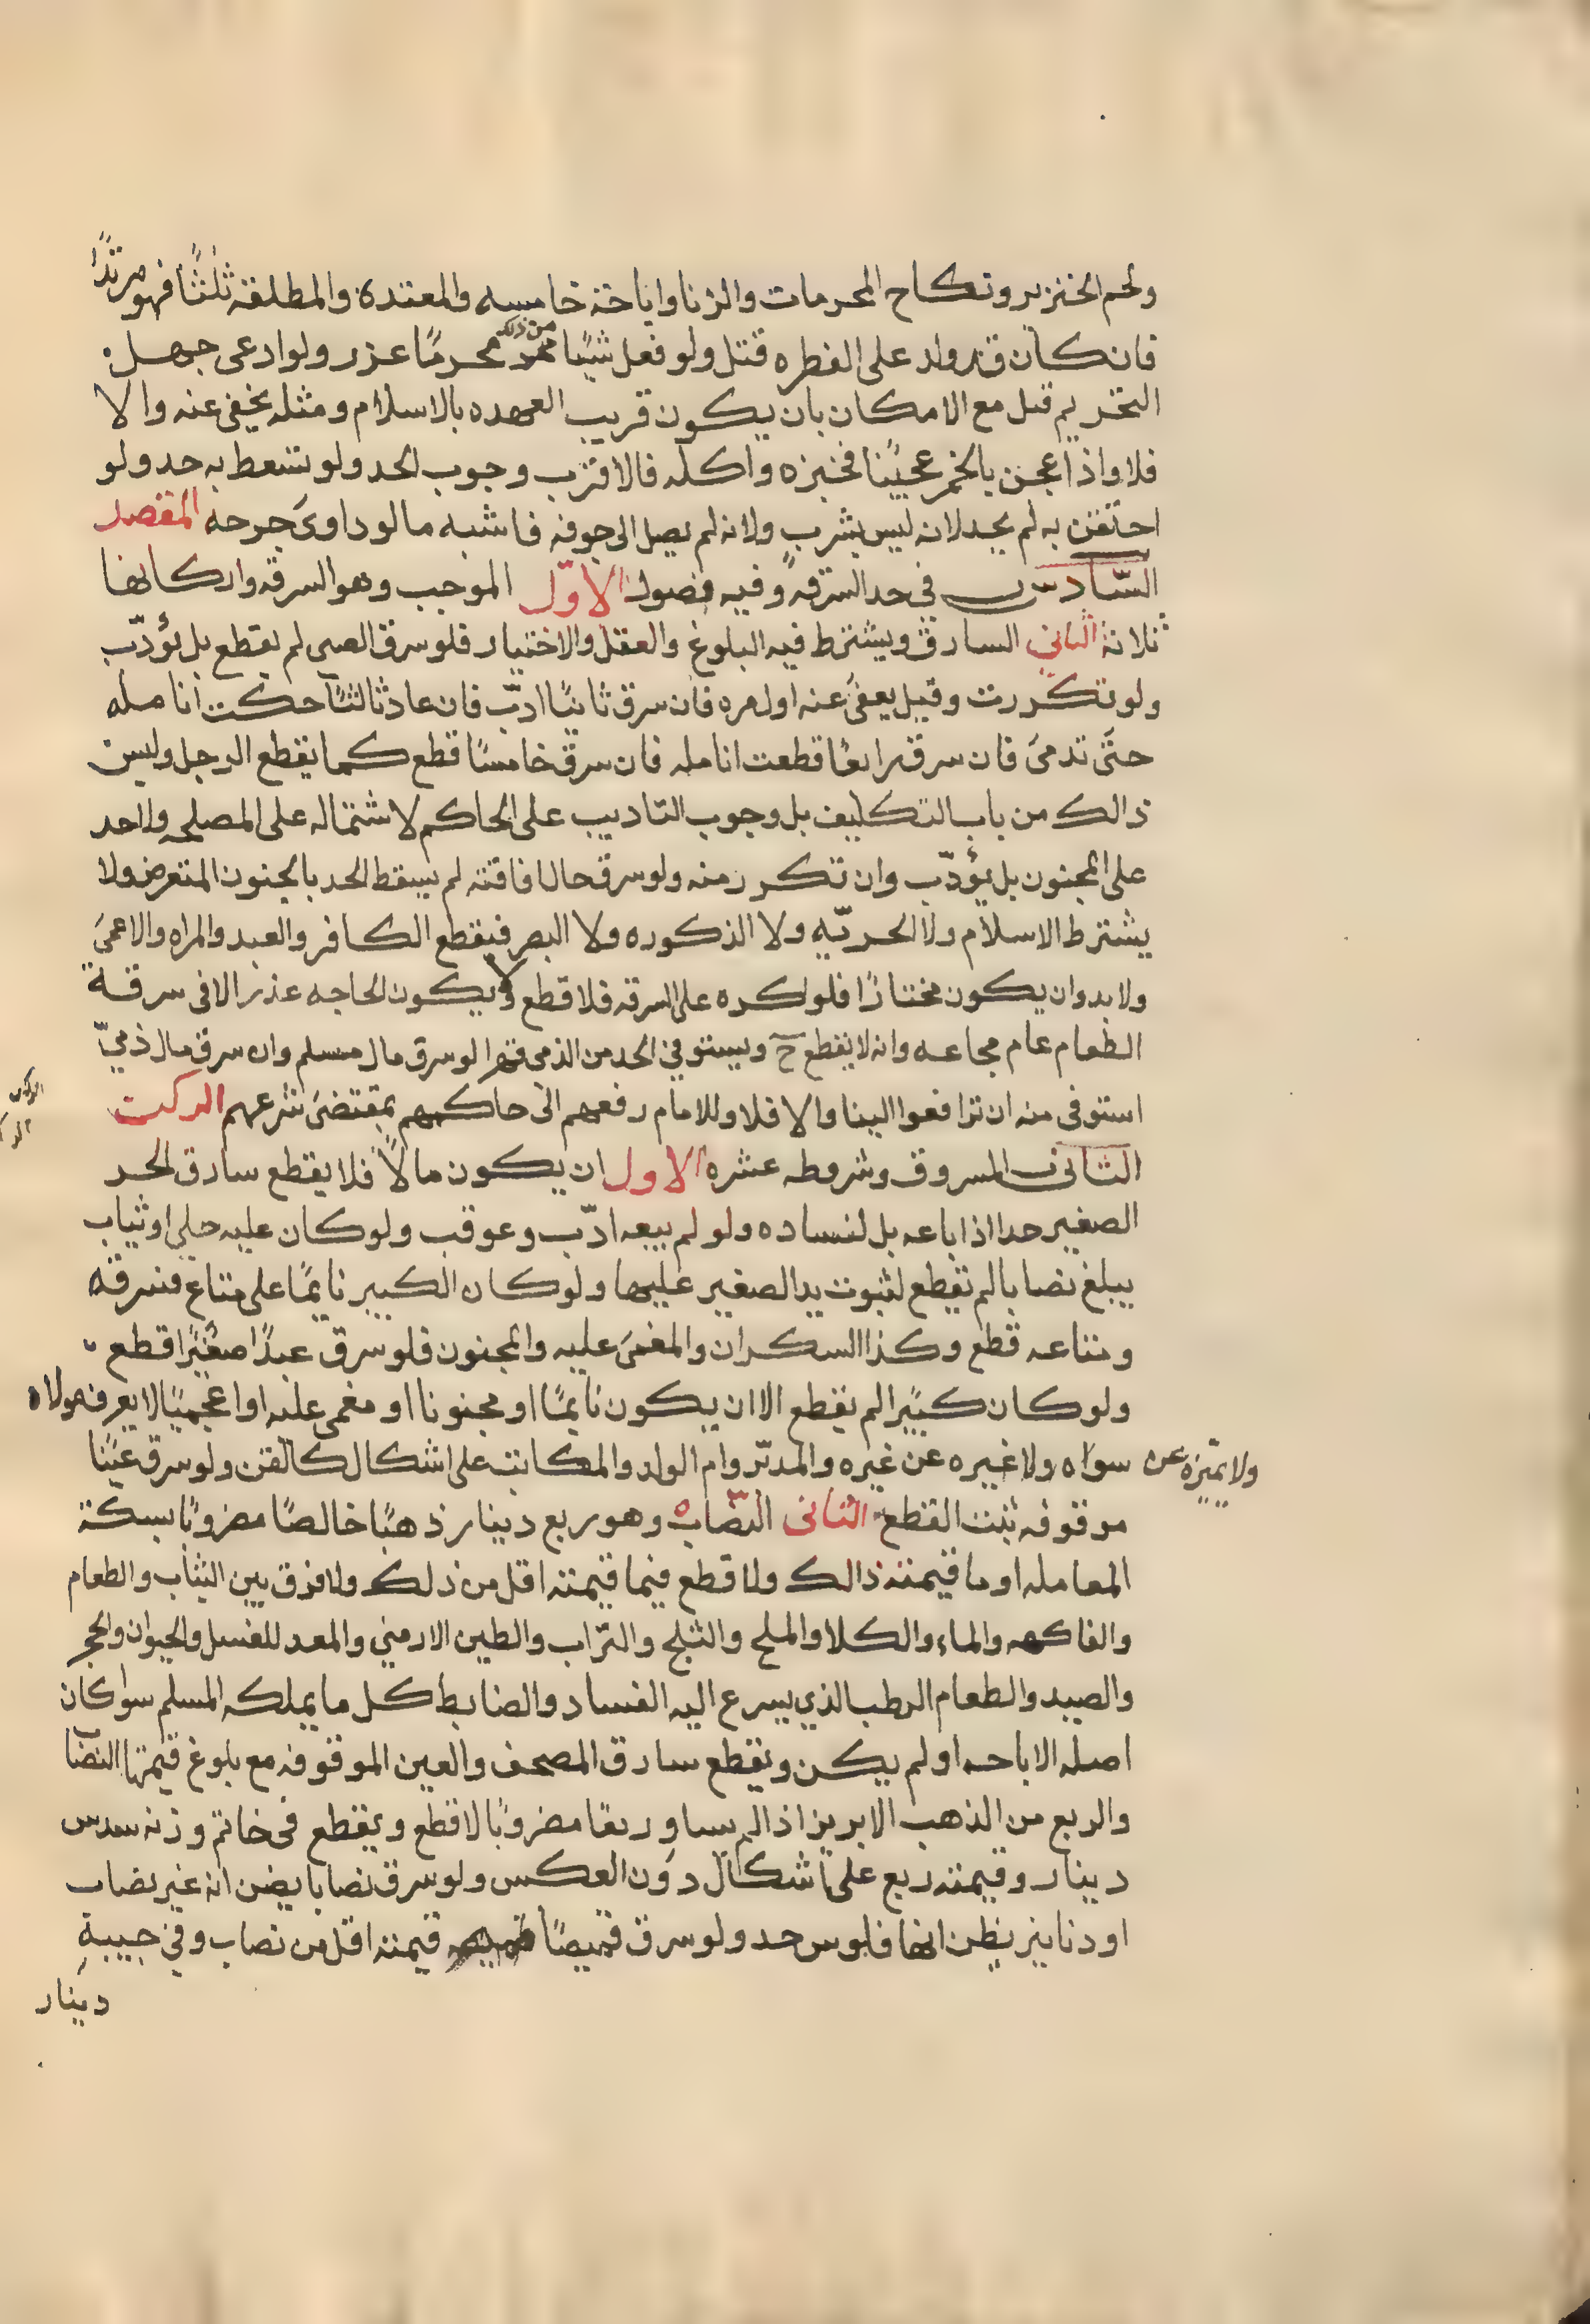 ولحم الخنزير ونكاح المحرمات والزنا واباحة خامسه والمعتدة والمطلقه ثلثًا فهو مرتدًا
فان كان قد ولد على الفطره قتل ولو فعل شيئًا من ذلك محرمًا عزر ولو ادعى جهل
التحريم قبل مع الامكان بان يكون قريب العهده بالاسلام ومثله يخفى عنه والا
فلا واذا عجن بالخمر عجينًا فخبزه واكله فالاقرب وجوب الحد ولو تسعط به حد ولو
احتقن به لم يحد لانه ليس بشرب ولانه لم يصل الى جوفه فاشبه ما لو داوى جرحه المقصد
السّادس في حد السرقه وفيه فصول الاوّل الموجب وهو السرقه واركانها
ثلاثة الثاني السارق ويشترط فيه البلوغ والعقل والاختيار فلو سرق الصبى لم يقطع بل يؤدّب
ولو تكررت وقيل يعفى عنه اول مره فان سرق ثانيًا ادّب فان عاد ثالثًا حكت انامله
حتّى تدمى فان سرق رابعًا قطعت انامله فان سرق خامسًا قطع كما يقطع الرجل وليس
ذالك من باب التكليف بل وجوب التاديب على الحاكم لاشتماله على المصلحه ولا حد
على المجنون بل يؤدّب وان تكرر منه ولو سرق حال افاقته لم يسقط الحد بالجنون المتعرض ولا
يشترط الاسلام ولا الحريّه ولا الذكوره ولا البصر فيقطع الكافر والعبد والمراه والاعمى
ولا بد وان يكون مختارًا فلو اكره على السرقه فلا قطع ولا يكون الحاجه عذرا الا فى سرقة
الطعام عام مجاعه وانه لا يقطع ح ويستوفي الحد من الذمى قهرا لو سرق مال مسلم وان سرق مال ذميّ
استوفى منه ان ترافعوا الينا والا فلا وللامام رفعهم الى حاكمهم بمقتضى شرعهم الركن
الثانى المسروق وشروطه عشره الاول ان يكون مالًا فلا يقطع سارق الحر
الصغير حدا اذا باعه بل لفساده ولو لم يبعه ادّب وعوقب ولو كان عليه حلي او ثياب
يبلغ نصابا لم تقطع لثبوت يد الصغير عليها ولو كان الكبير نايمًا على متاع فسرقه
ومتاعه قطع وكذا السكران والمغمى عليه والمجنون فلو سرق عبدًا صغيرًا قطع
ولو كان كبيرًا لم يقطع الا ان يكون نايمًا او مجنونا او مغمى عليه او اعجميًا لا يعرف مولاه
ولا يميزه عن سواه ولا غيره عن غيره والمدبّر وام الولد والمكاتب على اشكال كالقن ولو سرق عينًا
موقوفه ثبت القطع الثانى النّصاب وهو ربع دينار ذهبًا خالصًا مضروبًا بسكة
المعامله او ما قيمته ذالك ولا قطع فيما قيمته اقل من ذلك ولا فرق بين الثياب والطعام
والفاكهه والماء والكلا والملح والثلج والتراب والطين الارمني والمعد للغسل والحيوان والحجر
والصيد والطعام الرطب الذي يسرع اليه الفساد والضابط كل ما يملكه المسلم سوا كان
اصله الاباحه او لم يكن ويقطع سارق المصحف والعين الموقوفه مع بلوغ قيمتها النصاب
والربع من الذهب الابريز اذا لم يساو ربعًا مضروبًا لا قطع ويقطع فى خاتم وزنه سدس
دينار وقيمته ربع على اشكال دون العكس ولو سرق نصابا يضن انه غير نصاب
او دنانيز يظن انها فلوس حد ولو سرق قميصًا قيمته اقل من نصاب وفي جيبهِ
دينار